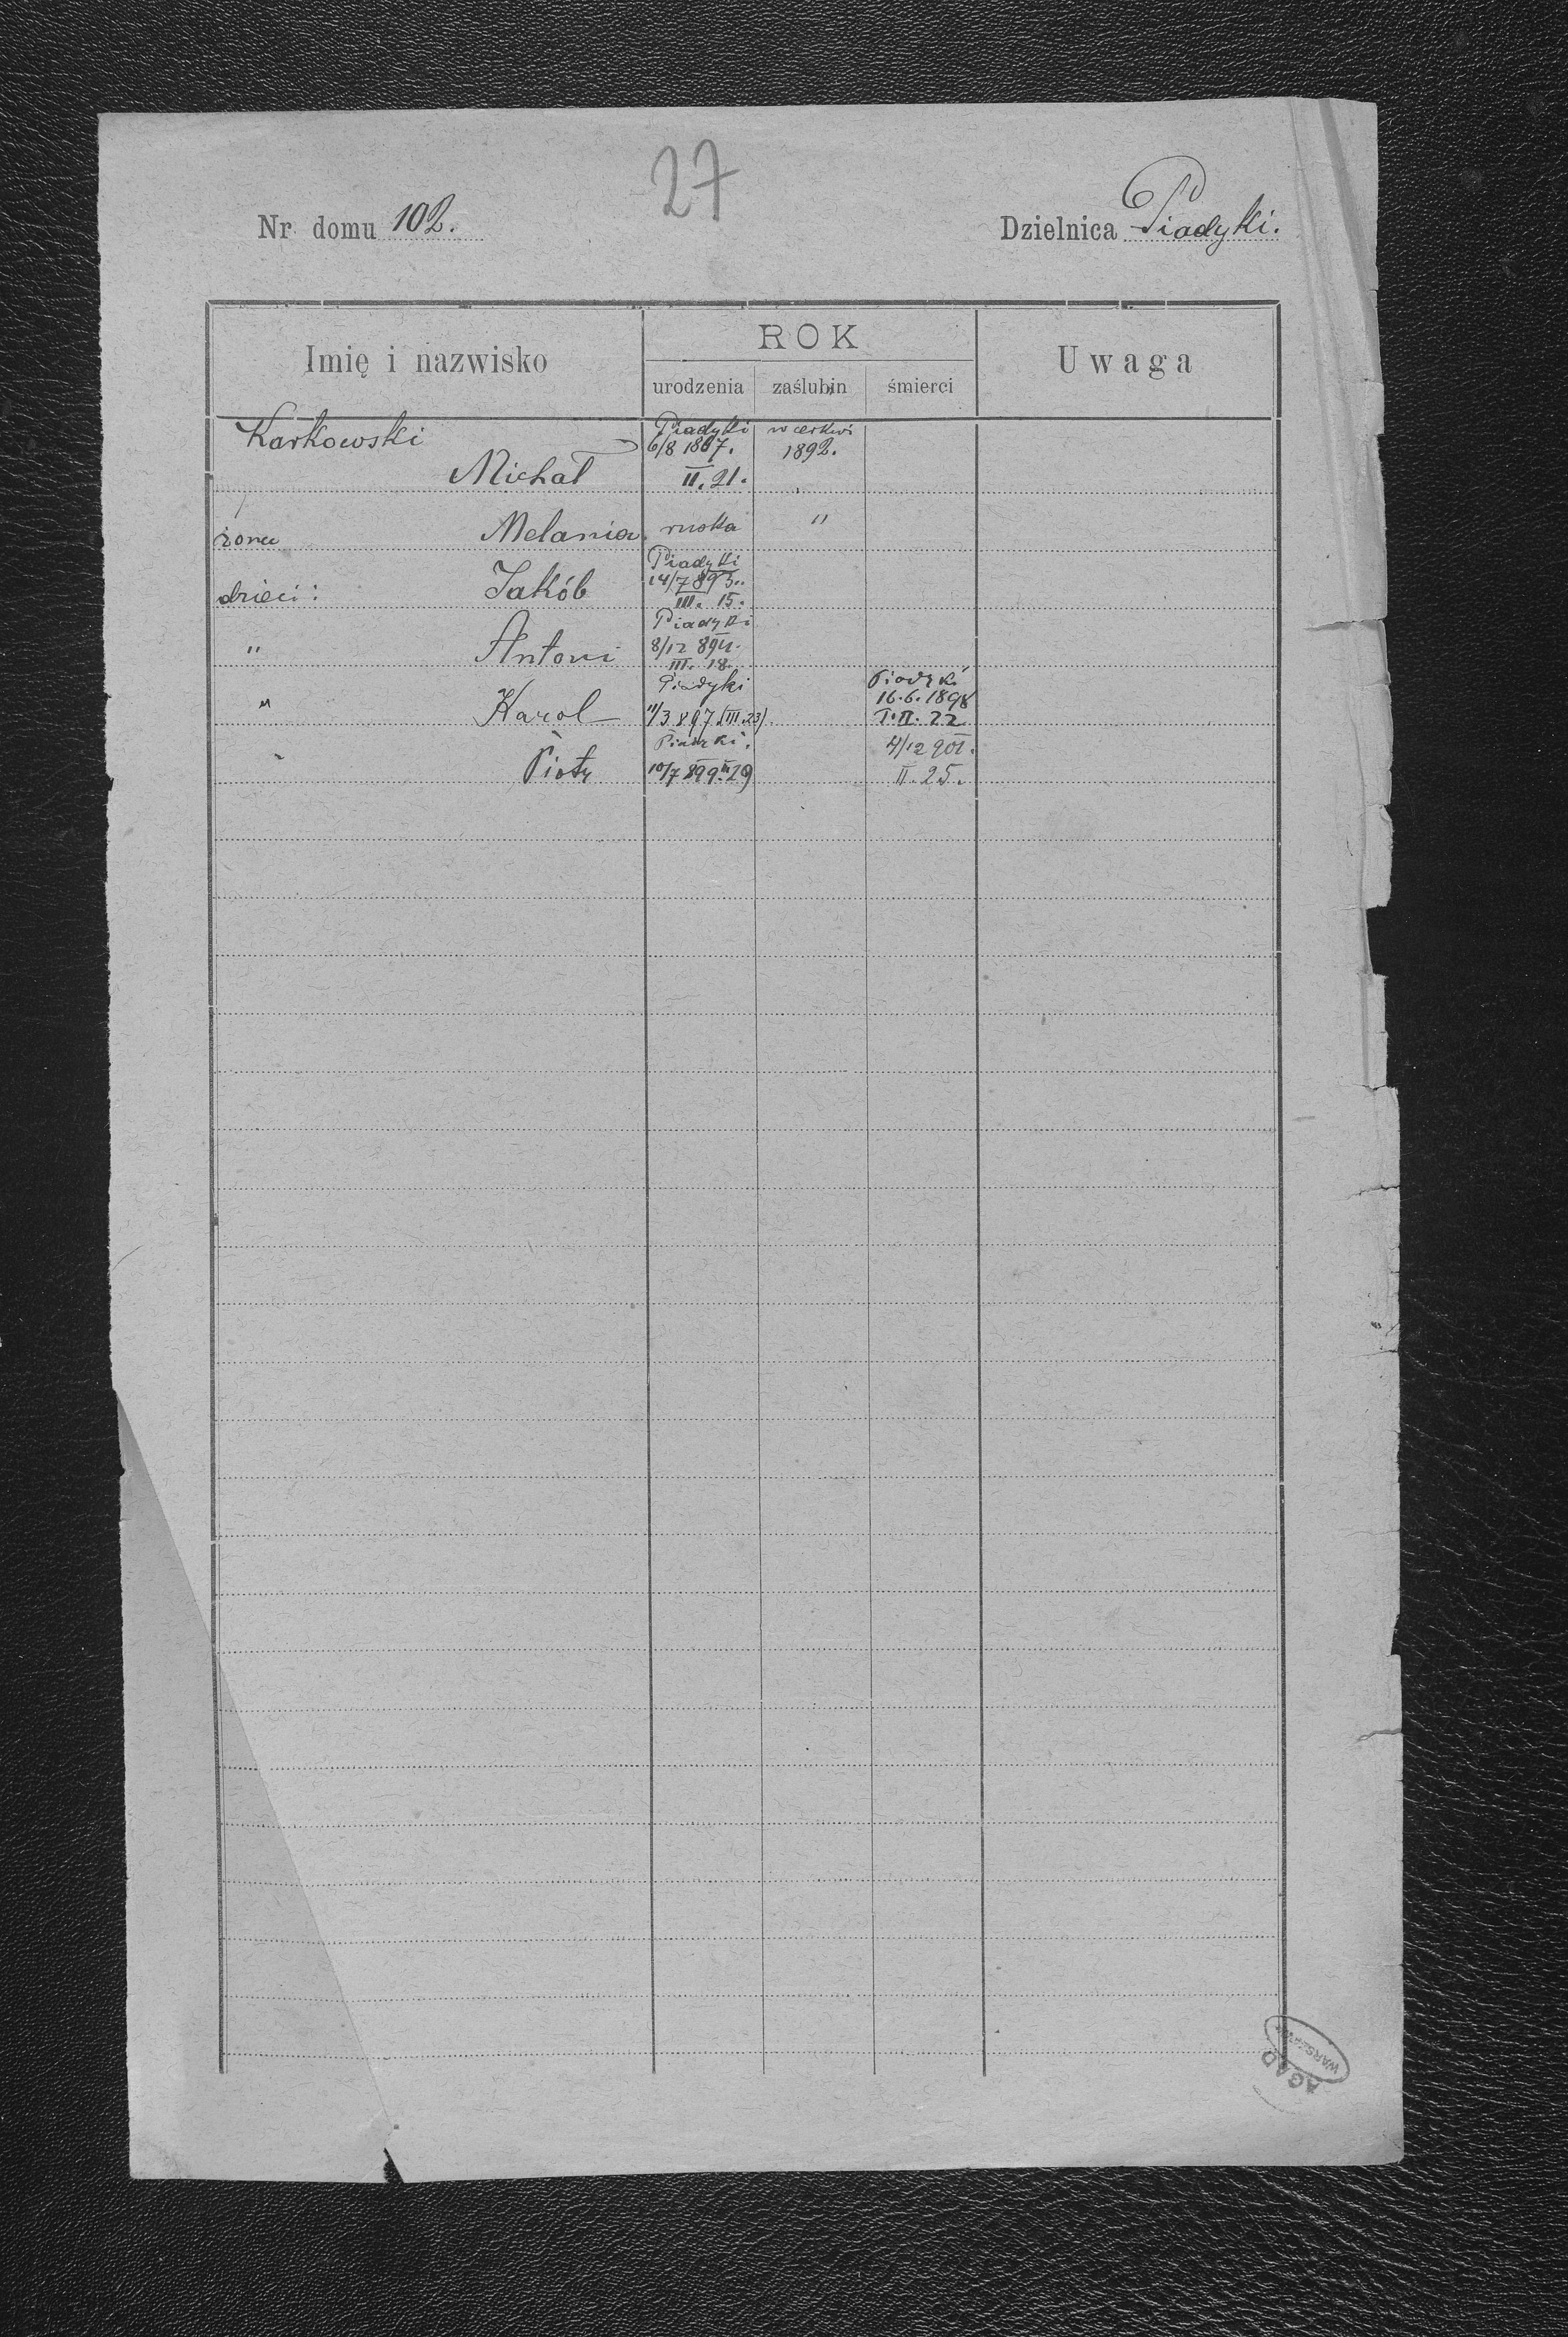 27
Nr domu 102.
Dzielnica Piadyki.
Imię i nazwisko
ROK
Uwaga
urodzenia zaślubin śmierci
Karkowski
Michał
Piadyki
6/8 1867.
II. 21.
w cerkwi
1892.
żona Melania ruska "
dzieci: Jakób
Piadyki
14/7 893.
III. 15.
" Antoni
Piadyki
8/12 894.
III. 18.
" Karol
Piadyki
11/3 897 (III.23).
Piadyki
16.6.1898
T.II. 22
" Piotr
Piadyki.
10/7 899. II 29
4/12 901.
II. 25.
AGAD
WARSZAWA